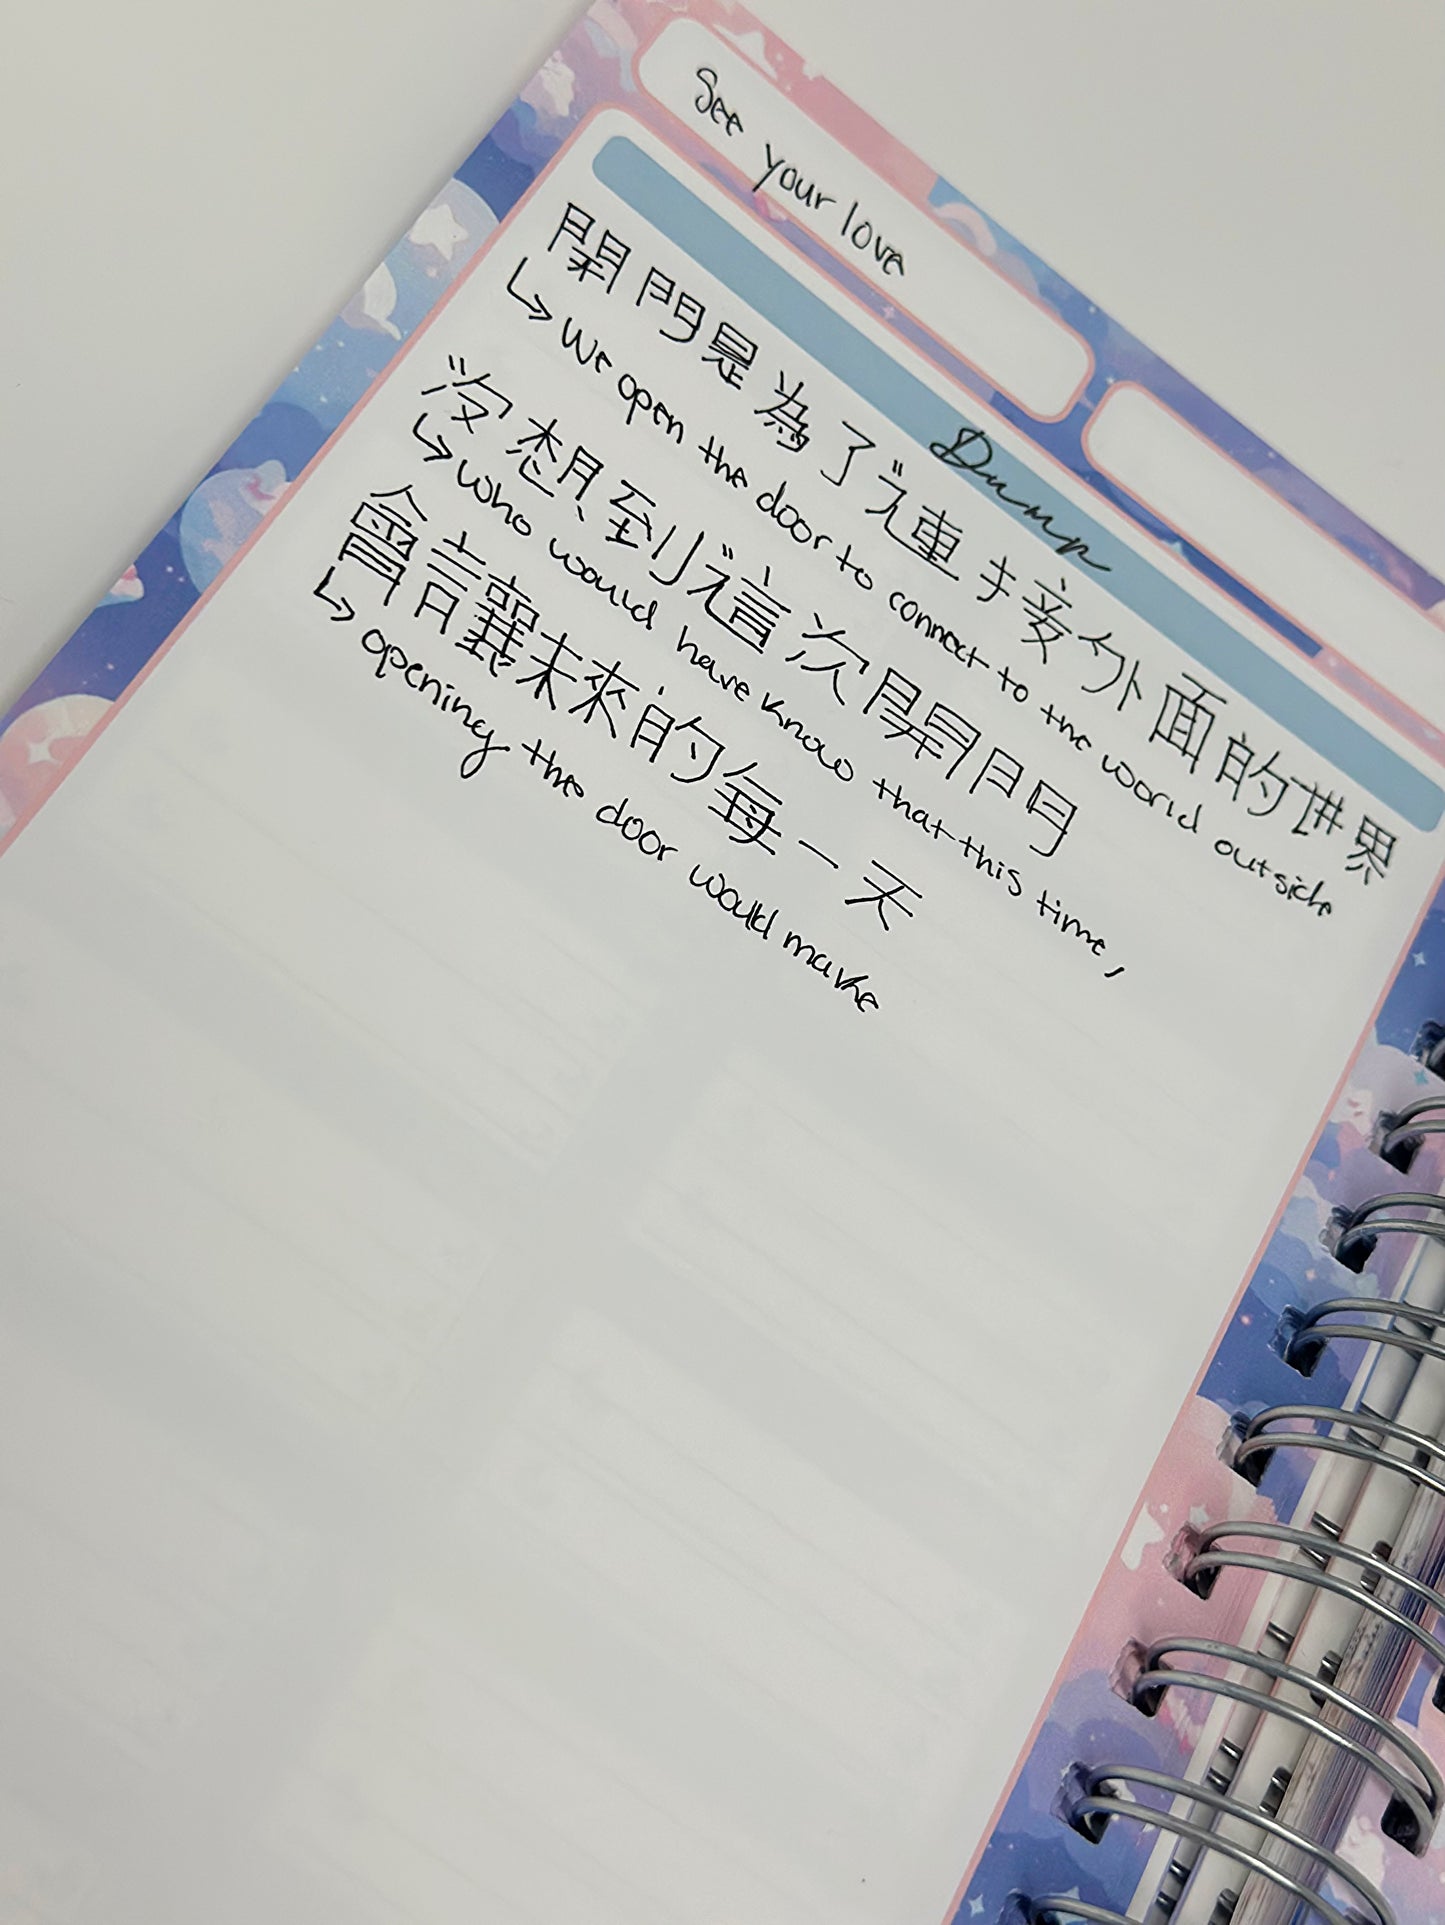 See your love
Dump
開門是為了連接外面的世界
↳ We open the door to connect to the world outside
沒想到這次開門
↳ who would have know that this time,
會讓未來的每一天
↳ opening the door would make